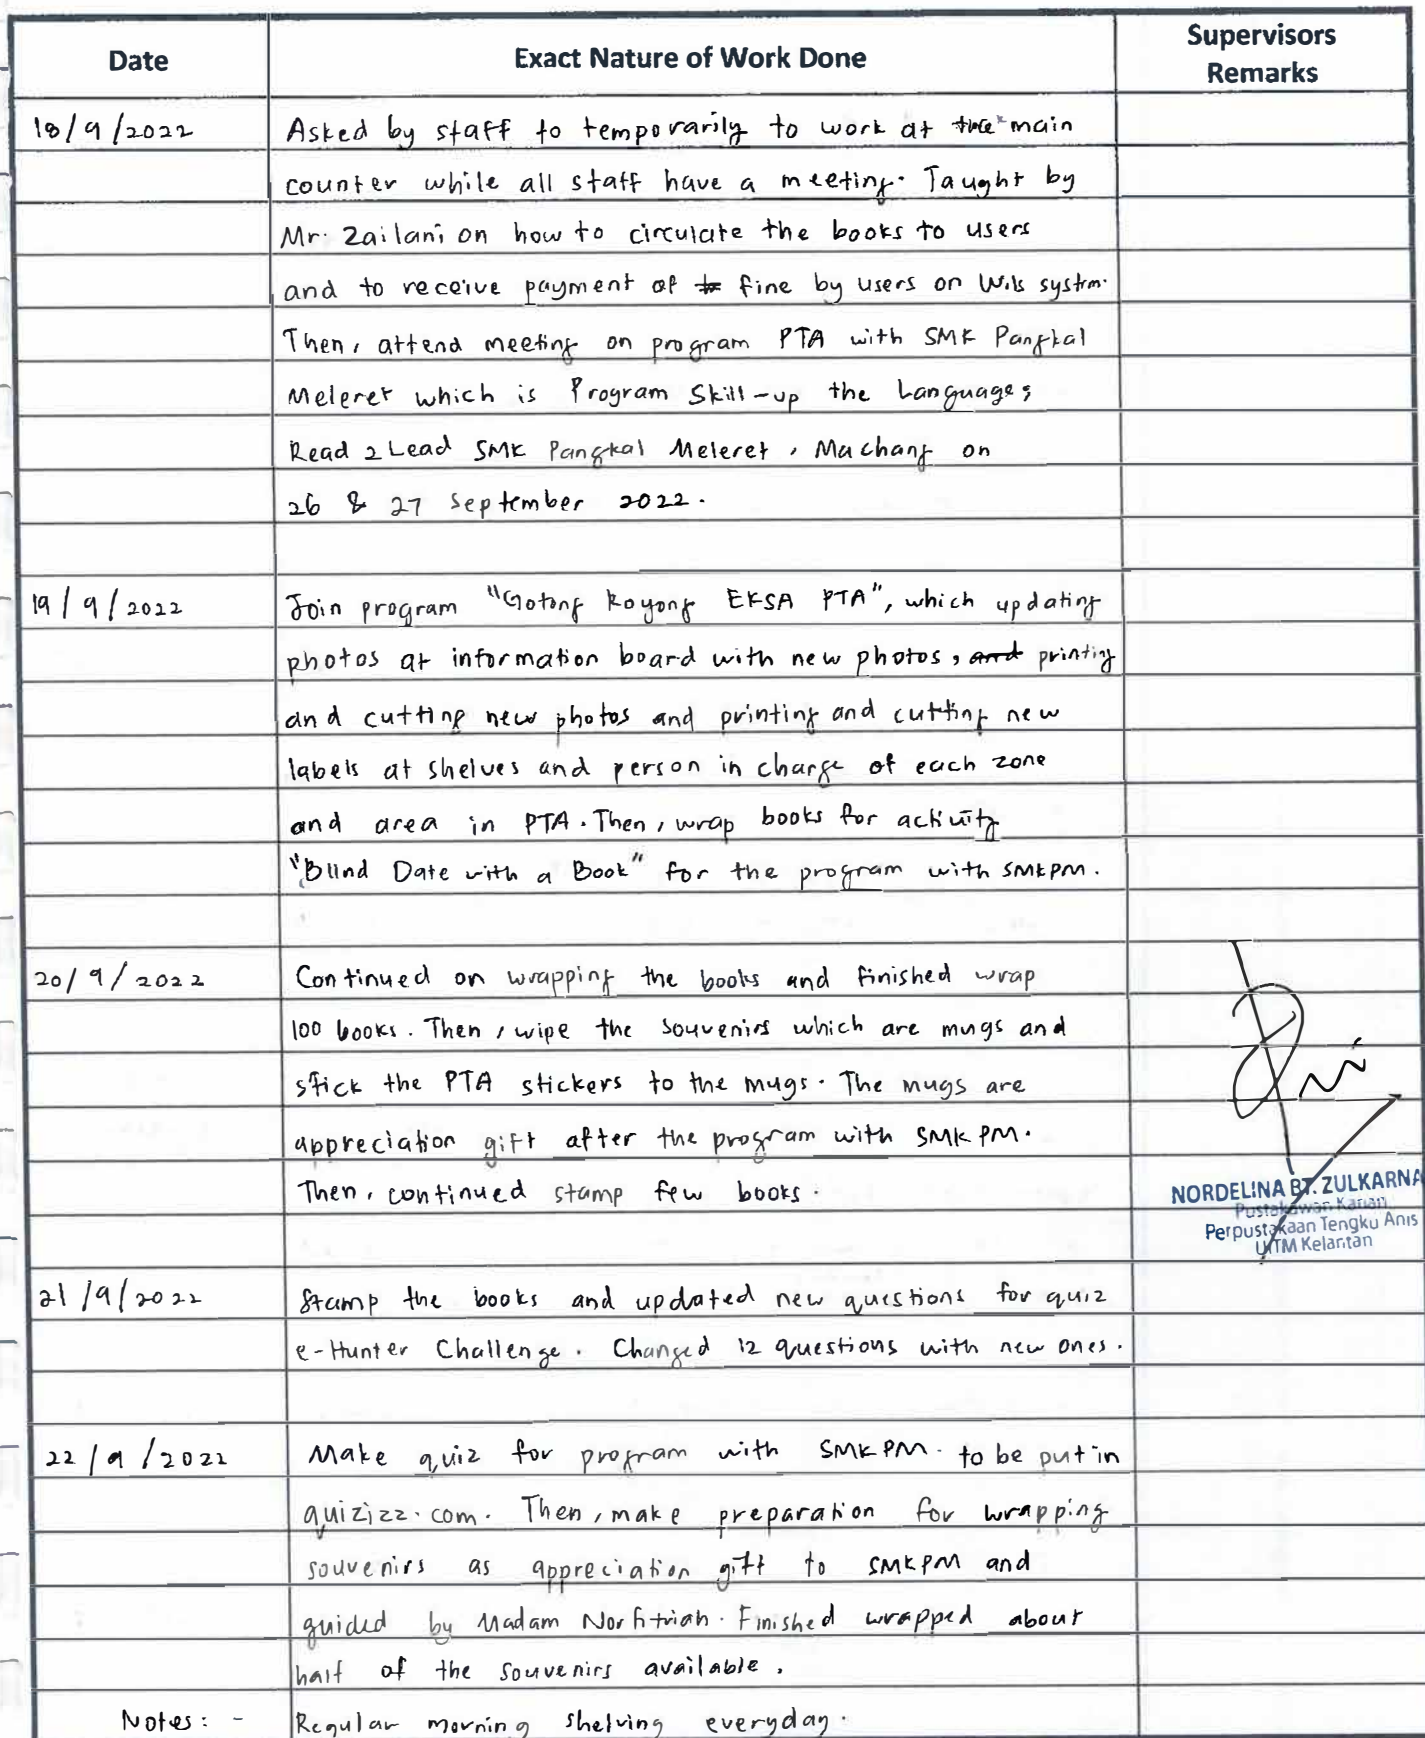 Date Exact Nature of Work Done Supervisors
Remarks
18/9/2022 Asked by staff to temporarily to work at the main
counter while all staff have a meeting. Taught by
Mr. Zailani on how to circulate the books to users
and to receive payment of fine by users on Wils systm.
Then, attend meeting on program PTA with SMK Pangkal
Meleret which is Program Skill-up the Language;
Read 2 Lead SMK Pangkal Meleret, Machang on
26 & 27 September 2022.
19/9/2022 Join program "Gotong Royong EKSA PTA", which updating
photos at information board with new photos, and printing
and cutting new photos and printing and cutting new
labels at shelves and person in charge of each zone
and area in PTA. Then, wrap books for activity
"Blind Date with a Book" for the program with SMKPM.
20/9/2022 Continued on wrapping the books and finished wrap
100 books. Then, wipe the souvenirs which are mugs and
stick the PTA stickers to the mugs. The mugs are
appreciation gift after the program with SMKPM.
Then, continued stamp few books.
NORDELINA BT. ZULKARNA
Pustakawan Kanan
Perpustakaan Tengku Anis
UiTM Kelantan
21/9/2022 Stamp the books and updated new questions for quiz
e-Hunter Challenge. Changed 12 questions with new ones.
22/9/2022 Make quiz for program with SMKPM. to be put in
quizizz.com. Then, make preparation for wrapping
souvenirs as appreciation gift to SMKPM and
guided by Madam Norfitriah. Finished wrapped about
half of the souvenirs available.
Notes: - Regular morning shelving everyday.